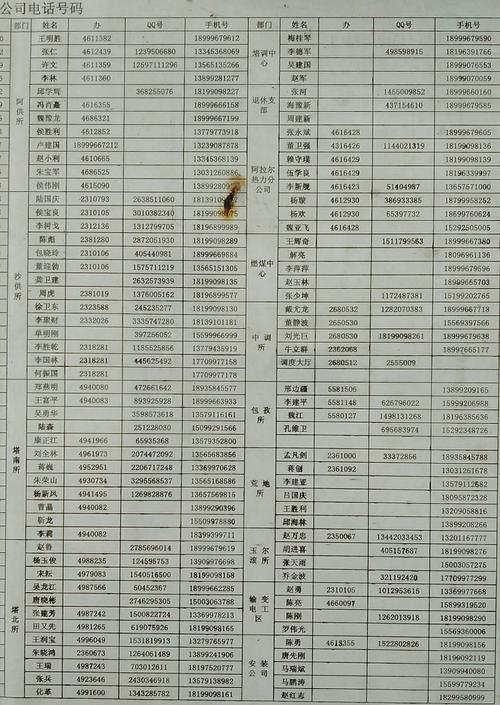 公司电话号码
部门 办 QQ号 手机号 部门 姓名 办 QQ号 手机号
王明胜 4611382 18999679612
张仁 4612439 1239506680 13345368069
许文 4611359 12597111296 13565135266
李林 4611360 13899281277
邱学辉 368255076 18999667992
冯肖矗 4616355 18999666158
魏豫龙 4686321 18999667199
侯胜利 4612852 13779773918
卢建国 18999667212 13239890787
赵小利 4610665 13345368139
朱宝军 4686525
侯伟刚 4615090
阿供所
陆国庆 2310793 2638511060
侯宝良 2310095 3010382340
李树戈 2312136 1312799705 18196899989
陈彪 2381280 2872051930 18199098289
包晓玲 2310156 405440981 18999669884
董迎勃 2310216 1575711219 13565151305
龚卫建 2632573939 18199098135
周虎 2381019 1376005162 18196899577
徐卫东 2323588 245235277 18199098130
李聚财 2332026 3335747280 18139101181
单明刚 397256052 15599966999
李胜乾 2318281 1185525856 13779435919
李国林 2318281 445625492 17709977158
何振国 2318281 17709998172
沙供所
郑燕明 4940080 472661642 18935845577
王富平 4940082 893925928 18999663933
吴勇华 3598573618 13579116161
陆淼 251228030 15099291566
康正江 4941966 65935368 13579352800
刘全林 4961973 2074472092 13565683856
蒋巍 4952951 2206717248 13369970628
朱荣山 4930734 3295568537 13565168586
杨新风 4941495 1269828876 13657569815
曾晶 4940082 13899290396
靳龙 15509978880
李霭 4940082 18399399711
塔南所
赵鲁 2785696014 18999679619
杨玉俊 4988235 124596753 13909976698
宋耘 4979083 1540516500 18199098158
吴龙江 4987567 50452367 18999662235
唐晓彬 2746295305 15003063788
张建芳 4987242 1500822724 13369978213
田又先 4981265 619075926 18199098181
王利宝 4996049 1531819913 13279765977
朱晓鸿 2360673 1264061489 13899241906
王瑞 4987243 703012611 18197520777
张兵 4923646 2430346918 13579138982
化革 4991600 1343285782 18199098161
塔北所
梅桂琴 18999679590
李德军 498598915 18196391766
吴建国 18999076553
赵军 18999070059
张河 1455009852 18999660160
海豫新 437154610 18999679585
周建新
培训中心
退休支部
张永斌 4616428 18999679605
董卫强 4616431 1144021319 18199098136
赖守璞 4616430 18199098139
伍学良 4616430 18199098136
李新舰 4616423 51404987 13657571000
杨璇 4612890 386933385 18999098252
杨欢 4612890 65397732 18699760624
魏亚飞 4616429 15292505005
阿拉尔热力分公司
王辉奇 1511799563 18999667380
解亮 18096961136
李萍萍 18999679596
赵玉林 18999665703
张少坤 1172487381 15199202765
燃煤中心
戴尤龙 2680532 1282070383 18999667718
董静波 2680530 15569397566
刘光巨 2680530 18199098261 18999679638
牛立群 2362068 18997665177
调度大厅 2680512 2555009
中调所
邢边疆 5581506 13899209165
李建平 5581148 626796022 15999206988
魏江 5580127 1498131268 18196385636
孔维卫 695683974 15292348726
包孜所
孟凡剑 2361000 33372856 18935845788
蒋创 2361092 13031261678
李建亚 13579112682
吕国庆 18095872328
王胜利 13209058816
邱海林 13899208266
荒地所
赵万忠 2350067 13442033453 13201167777
胡进喜 405157687 18199098276
张天雨 15003057275
乔金波 321192420 17709977299
玉尔滚所
赵勇 2310105 1012953615 13399977668
陈亮 4660097 15899319520
陈刚 1262013918 18199098290
罗伟光 15569360006
输变电工区
陈勇 4613355 1522802826 18199098156
唐先刚 18199092119
马瑞斌 13909940080
马鹏涛 15599779234
赵红志 18299580999
安装公司